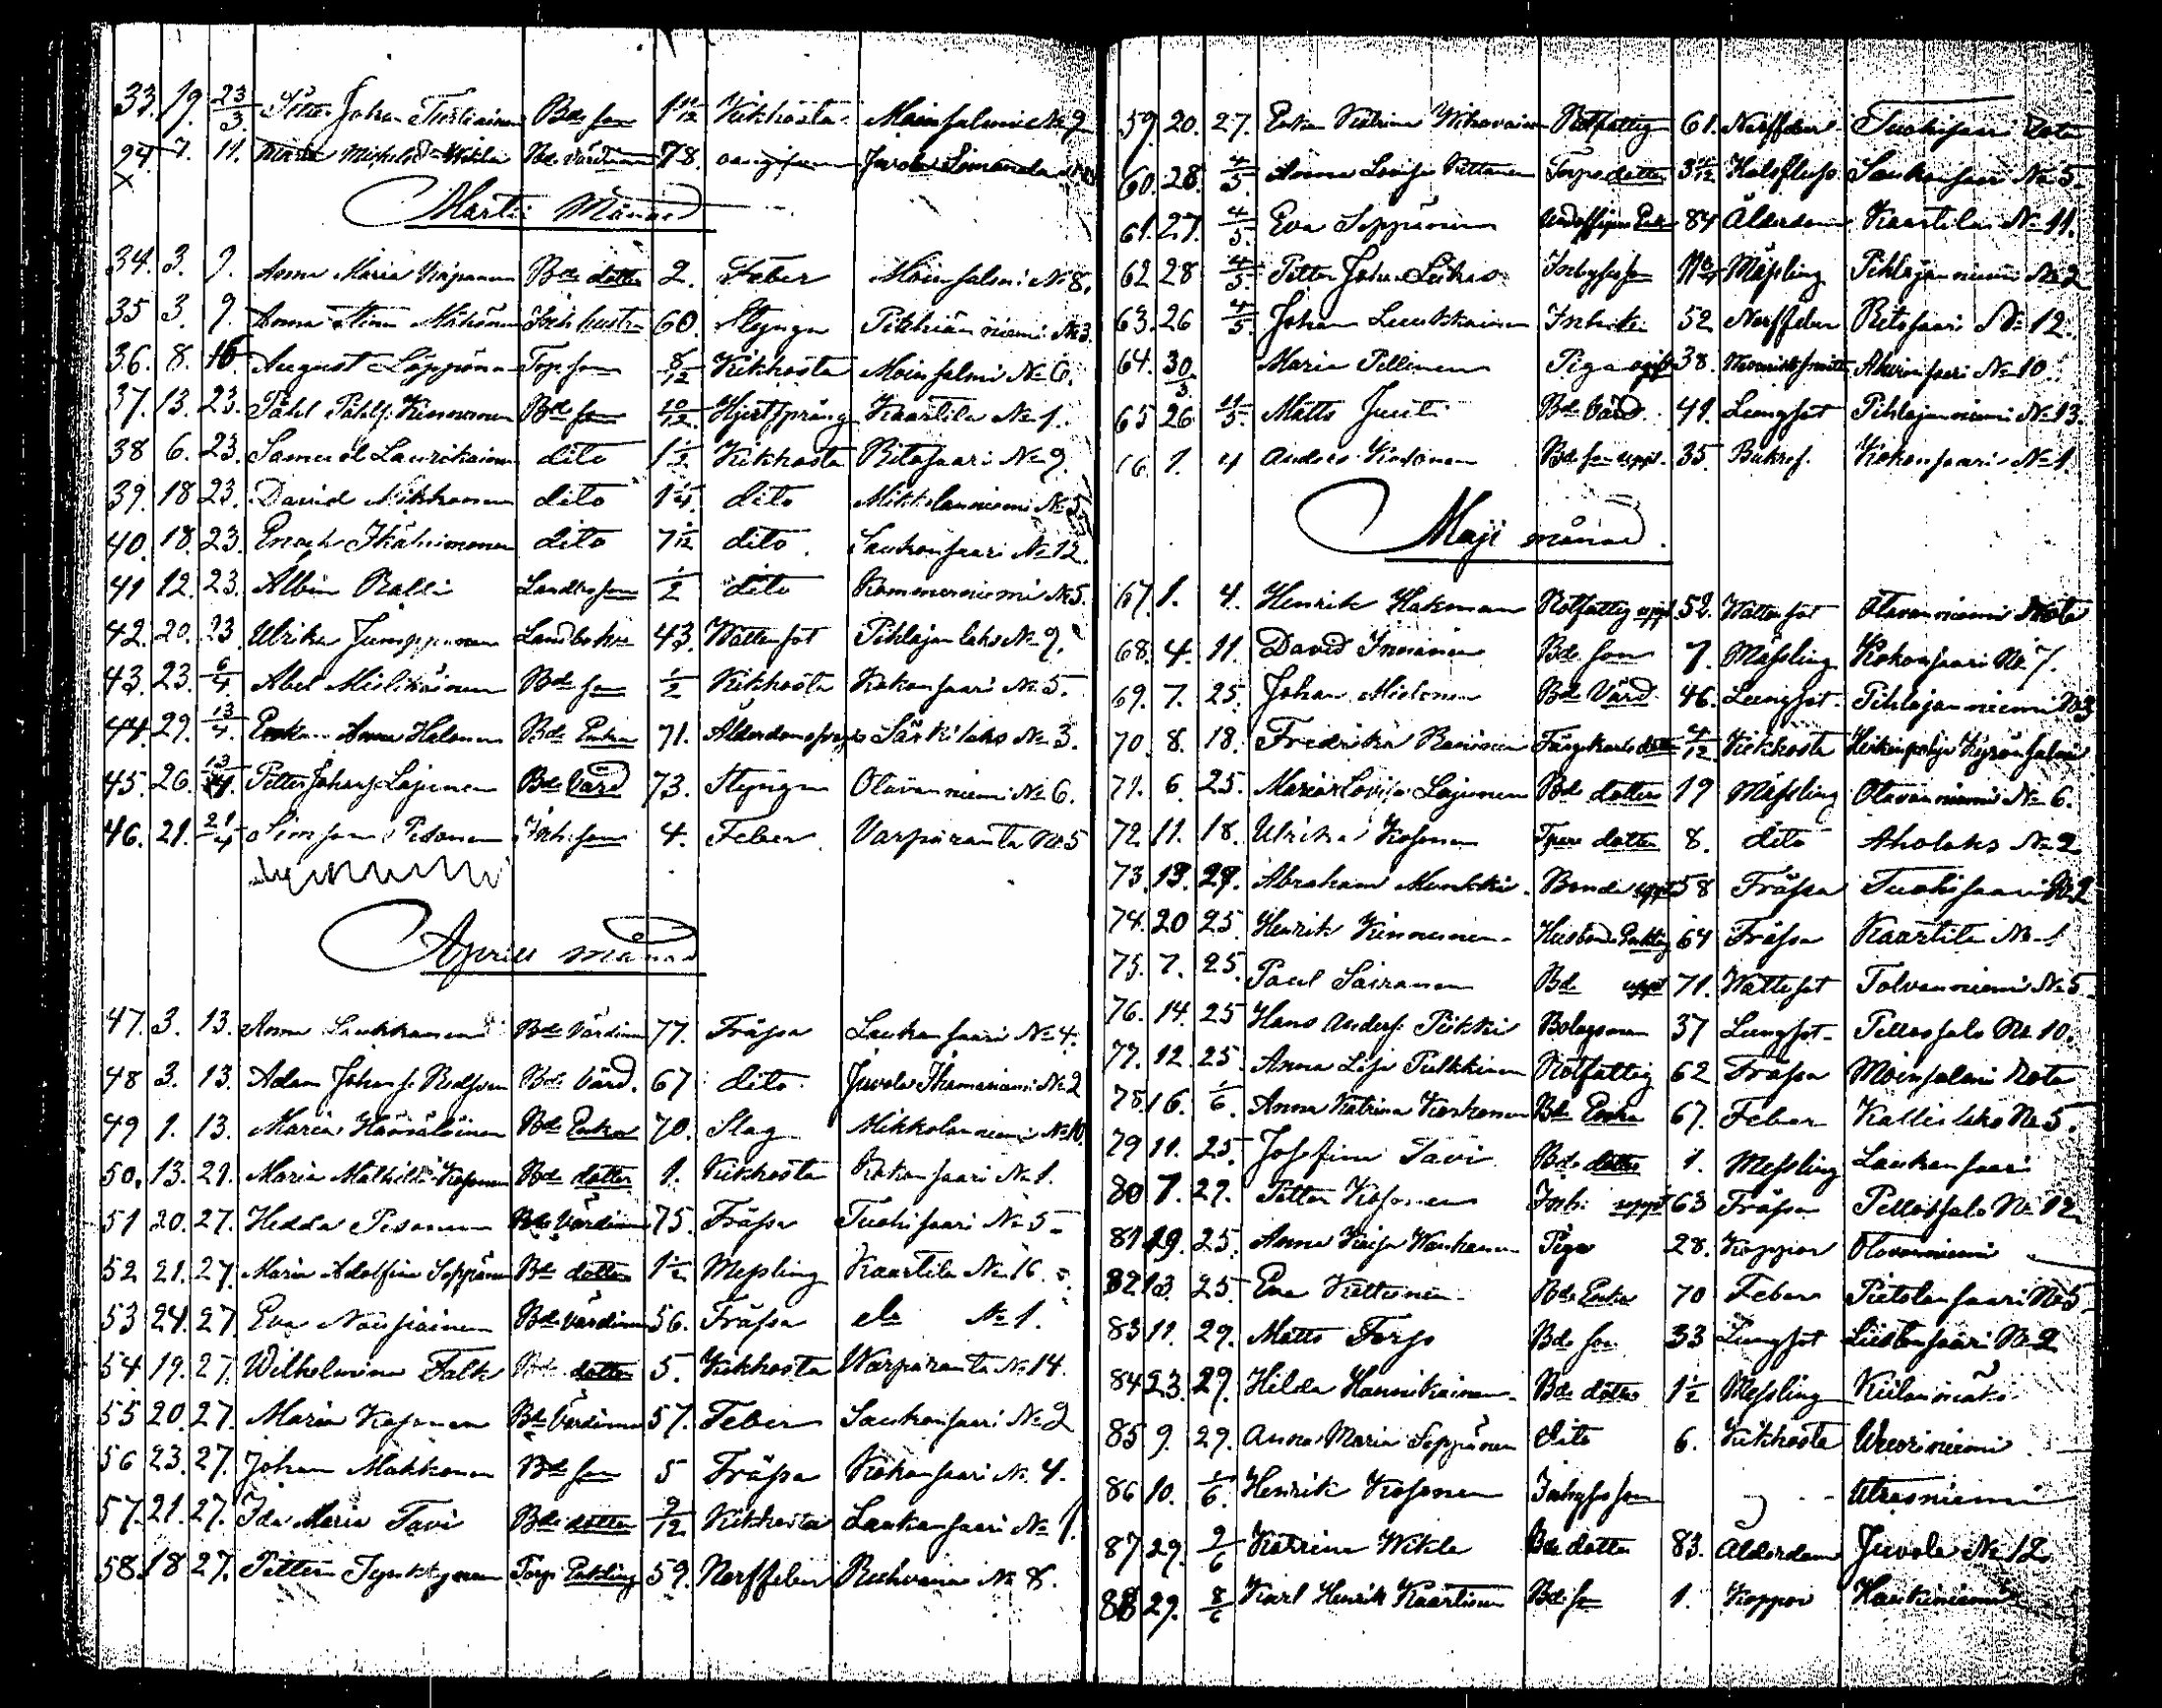 33. 19. 23/3 Petter Johan Turtiainen Bde son 1 11/12 Kikhosta Moinsalmi No 9
24 7. 11. Maria Michelsd. Wikla Bde Värdinna 78. Juvola
Martii Månad
34. 3. 9. Anna Maria Bde dotter 2. Feber Moinsalmi No 8.
35 3. 9. Anna Stina Inh hustru 60. Styngn No 3.
36. 8. 16. August Löppönen Torp son 8/12 Kikhosta Moinsalmi No 6.
37. 13. 23. Påhl Påhlss. Kinnunen Bde son 10/12 Hjertsprång Kaartila No 1.
38 6. 23. Samuel Laurikainen dito 1 1/2 Kikhosta Ritosaari No 9.
39. 18 23. David Mikkonen dito 1 1/4 dito Mikkolanniemi No 5
40. 18. 23. Enoch Ikäheimonen dito 7/12 dito Saukonsaari No 12.
41 12. 23. Albin Ralli Landbo son 1/2 dito Kommerniemi No 5.
42. 20. 23 Ulrika Jumppanen Landbo hu 43. Wattusot Pihlajanlaks No 9.
43. 23. 6/4 Abel Mielikäinen Bde son 1/2 Kikhosta Kokonsaari No 5.
44. 29. 13/4. Enkan Anna Halonen Bde Enka 71. Ålderdomsbräck Särkilaks No 3.
45. 26. 13/4. Petter Johanss Lajunen Bde Värd 73. Styngn Olavanniemi No 6.
46. 21. 21/4 Simson Pesonen Inh. son 4. Feber Varparanta No 5
Aprill månad
47. 3. 13. Anna Laukkanen Bde Värdinna 77. Fråssa Laukansaari No 4.
48 3. 13. Adam Johan s. Redsven Bde Värd. 67 dito Juvola Ihamaniemi No 2
49 1. 13. Maria Hämäläinen Bde Enka 70. Slag Mikkolanniemi No 10.
50. 13. 21. Maria Mathilda Kosonen Bde dotter 1. Kikhosta Kokonsaari No 1.
51 20. 27. Hedda Pesonen Bde Värdinna 75. Fråssa Tuohisaari No 5
52 21. 27. Maria Adolfina Seppänen Bde dotter 1 1/2 Messling Kaartila No 16.
53 24. 27. Eva Nousiainen Bde Värdinna 56. Fråssa do No 1.
54 19. 27. Wilhelmina Falk Bde dotter 5. Kikhosta Warparanta No 14.
55 20. 27. Maria Kosonen Bde Värdinna 57. Feber Saukonsaari No 2
56 23. 27. Johan Makkonen Bde son 5 Fråssa Kokonsaari No 4.
57. 21. 27. Ida Maria Tavi Bde dotter 9/12 Kikhosta Laukansaari No 1.
58. 18 27. Petter Tynkkynen Torp. Enkling 59. Nerffeber Ruhvana No 8.
59. 20. 27. Enkan Katrina Wihavainen Rotfattig 61. Nerffeber Tuohisaari Rote
60. 28. 4/5. Anna Lovisa Puttonen Torpe dotter 3 4/12 Halsfluss Saukonsaari No 5.
61. 27. 4/5. Eva Seppänen Enka 84 Ålderdom Kaartila No 11.
62 28 4/5. Petter Johan Liikas Inhyses son Mässling Pihlajanniemi No 2
63. 26 4/5. Johan Luukkainen Inhuk. 52 Nerffeber Ritosaari No 12.
64. 30/3 Maria Pellinen Piga ogift 38. Akuinsaari No 10
65 26 11/5. Matts Juuti Bde Värd. 41. Lungsot Pihlajanniemi No 13.
66. 1. 4 Anders Kosonen Bde son uppt. 35. Bukref. Kokonsaari No 1.
Maji månad.
67. 1. 4. Henrik Hakman Rotfattig uppt. 52. Wattusot Olavanniemi Rote
68. 4. 11. David Immonen Bde son 7. Mässling Kokonsaari No 7.
69. 7. 25. Johan Mielonen Bde Värd. 46. Lungsot. Pihlajanniemi No 3
70. 8. 18. Fredrika Färgkarls dotter 4/12 Kikhosta Heikinpohja Kyrönsalmi
71. 6. 25. Maria Lovisa Lajunen Bde dotter 19 Mässling Olavanniemi No 6.
72. 11. 18. Ulrika Kosonen Tpare dotter 8. dito Aholaks No 2
73. 13. 27. Abraham Munkki Bonde uppt 58 Fråssa Tuohisaari No 2
74. 20 25. Henrik Kinnunen Husbonde Enkling 64 Fråssa Kaartila No 1
75. 7. 25. Paul Sairanen Bde uppt 71. Wattusot Tolvanniemi No 5
76. 14. 25 Hans Anders s. Pickki Bolagsman 37 Lungsot Pellossalo No 10.
77. 12. 25. Anna Lisa Pulkkinen Rotfattig 62 Fråssa Moinsalmi Rote
78. 16. 1/6. Anna Katrina Koskonen Bde Enka 67. Feber Kallislaks No 5.
79 11. 25. Josefina Tavi Bde dotter 1. Messling Laukansaari
80 7. 29. Petter Kosonen Inh. uppt 63 Fråssa Pellossalo No 12.
81 19. 25. Anna Kaisa Piga 28. Koppor Olavanniemi
82 13. 25. Eva Kettunen Bde Enka 70 Feber Pietolansaari No 5
83 11. 29. Matts Torss Bde son 33 Lungsot Liistonsaari No 2
84 23. 29. Hilda Hannikainen Bde dotter 1 1/2 Messling Kiilanmäki
85 9. 29. Anna Maria Seppänen dito 6. Kikhosta Wuoriniemi
86 10. 1/6. Henrik Kosonen Inhyses son Utrasniemi
87 29. 2/6 Katrina Wikla Bde dotter 83. Ålderdom Juvola No 12
88 29. 8/6 Karl Henrik Kaartinen Bde son 1. Koppor Haukiniemi